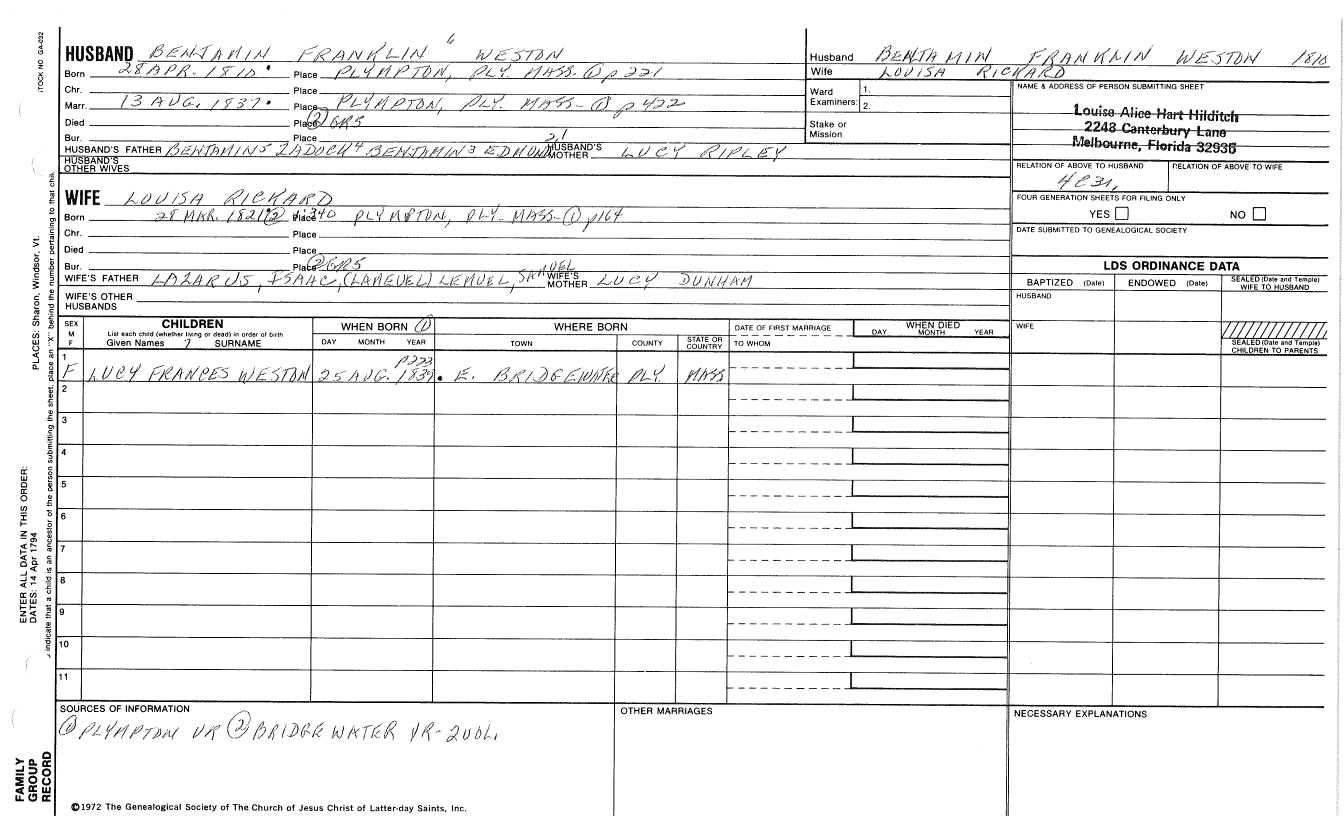 STOCK NO GA-032
HUSBAND BENJAMIN FRANKLIN 6 WESTON
Born 28 APR. 1810 Place PLYMPTON, PLY. MASS. ① p 221
Chr. Place
Marr. 13 AUG. 1837. Place PLYMPTON, PLY. MASS- ① p 422
Died Place ② GRS
Bur. Place
HUSBAND'S FATHER BENJAMIN 5 ZADOCK 4 BENJAMIN 3 EDMUND 2,1 HUSBAND'S MOTHER LUCY RIPLEY
HUSBAND'S OTHER WIVES
Husband BENJAMIN FRANKLIN WESTON 1810
Wife LOUISA RICKARD
Ward Examiners: 1. 2.
Stake or Mission
NAME & ADDRESS OF PERSON SUBMITTING SHEET
Louise Alice Hart Hilditch
2248 Canterbury Lane
Melbourne, Florida 32935
RELATION OF ABOVE TO HUSBAND RELATION OF ABOVE TO WIFE
4C3R
FOUR GENERATION SHEETS FOR FILING ONLY
YES NO
DATE SUBMITTED TO GENEALOGICAL SOCIETY
WIFE LOUISA RICKARD
Born 28 MAR. 1821 ② Place PLYMPTON, PLY- MASS- ① p164
Chr. Place
Died Place
Bur. Place ② GRS
WIFE'S FATHER LAZARUS, ISAAC, (LAMEUEL) LEMUEL, SAMUEL WIFE'S MOTHER LUCY DUNHAM
WIFE'S OTHER HUSBANDS
LDS ORDINANCE DATA
BAPTIZED (Date) ENDOWED (Date) SEALED (Date and Temple) WIFE TO HUSBAND
HUSBAND
WIFE
SEALED (Date and Temple) CHILDREN TO PARENTS
SEX M F
CHILDREN
List each child (whether living or dead) in order of birth
Given Names 7 SURNAME
WHEN BORN ①
DAY MONTH YEAR
WHERE BORN
TOWN COUNTY STATE OR COUNTRY
DATE OF FIRST MARRIAGE
TO WHOM
WHEN DIED
DAY MONTH YEAR
1 p223
F LUCY FRANCES WESTON 25 AUG. 1839. E. BRIDGEWATER PLY. MASS
2
3
4
5
6
7
8
9
10
11
SOURCES OF INFORMATION
① PLYMPTON VR ② BRIDGEWATER VR- 2VOL.
OTHER MARRIAGES
NECESSARY EXPLANATIONS
©1972 The Genealogical Society of The Church of Jesus Christ of Latter-day Saints, Inc.
PLACES: Sharon, Windsor, Vt.
indicate that a child is an ancestor of the person submitting the sheet, place an "X" behind the number pertaining to that chil.
ENTER ALL DATA IN THIS ORDER:
DATES: 14 Apr 1794
FAMILY
GROUP
RECORD